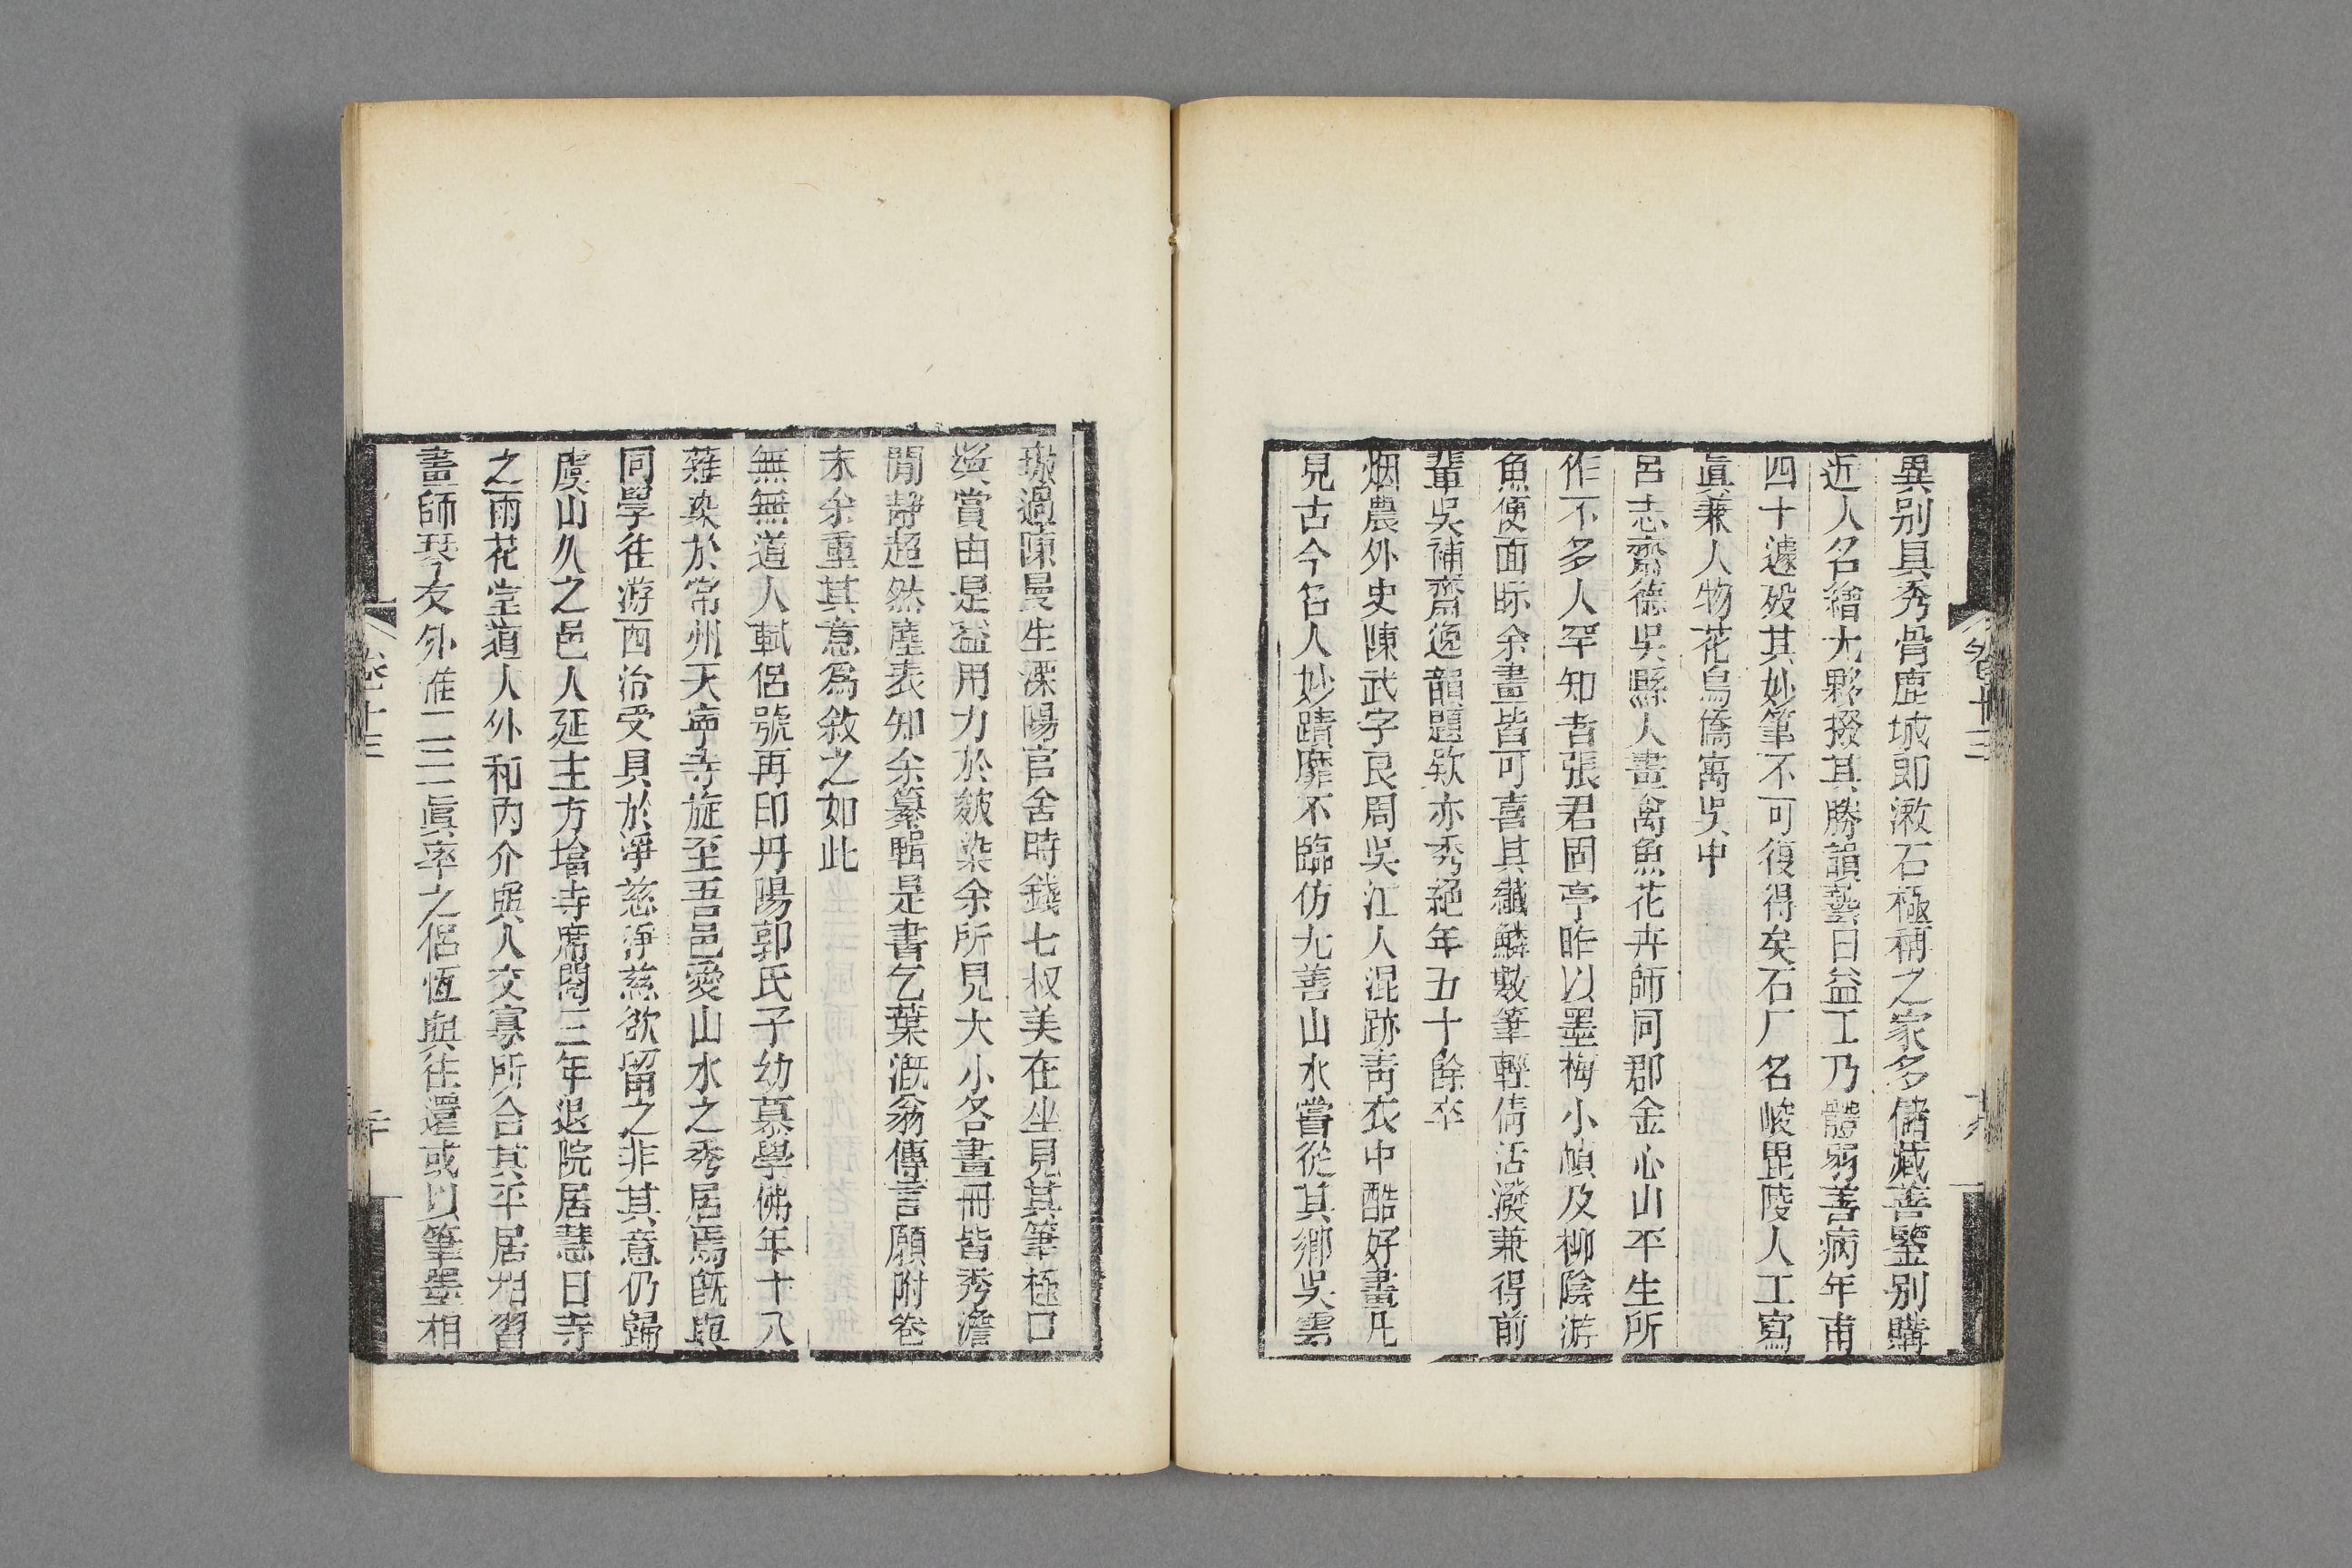 異别具秀骨鹿城即漱石極稱之家多儲藏善鑒别購
近人名繪尤夥掇其勝韻藝日益工乃體弱善病年甫
四十遽殁其妙筆不可復得矣石厂名峻毘陵人工寫
眞兼人物花鳥僑寓吳中
呂志齋德吳縣人畫禽魚花卉師同郡金心山平生所
作不多人罕知者張君固亭昨以墨梅小幀及柳陰游
魚便面眎余畫皆可喜其纖鱗數筆輕倩活潑兼得前
輩吳補齋逸韻題欵亦秀絕年五十餘卒
烟農外史陳武字良周吳江人混跡靑衣中酷好畫凡
見古今名人妙蹟靡不臨仿尤善山水嘗從其鄉吳雲
璈過陳曼生溧陽官舍時錢七叔美在坐見其筆極口
奬賞由是益用力於皴染余所見大小各畫冊皆秀澹
閒靜超然塵表知余纂輯是書乞葉溉翁傳言願附卷
末余重其意爲敘之如此
無無道人軾侶號再印丹陽郭氏子幼慕學佛年十八
薙染於常州天寧寺旋至吾邑愛山水之秀居焉旣與
同學往游西冶受具於淨慈淨慈欲留之非其意仍歸
虞山久之邑人延主方墖寺席閱三年退院居慧日寺
之雨花堂道人外和內介與人交寡所合其平居相習
畫師琴友外惟二三眞率之侶恆與往還或以筆墨相
卷十三
二十